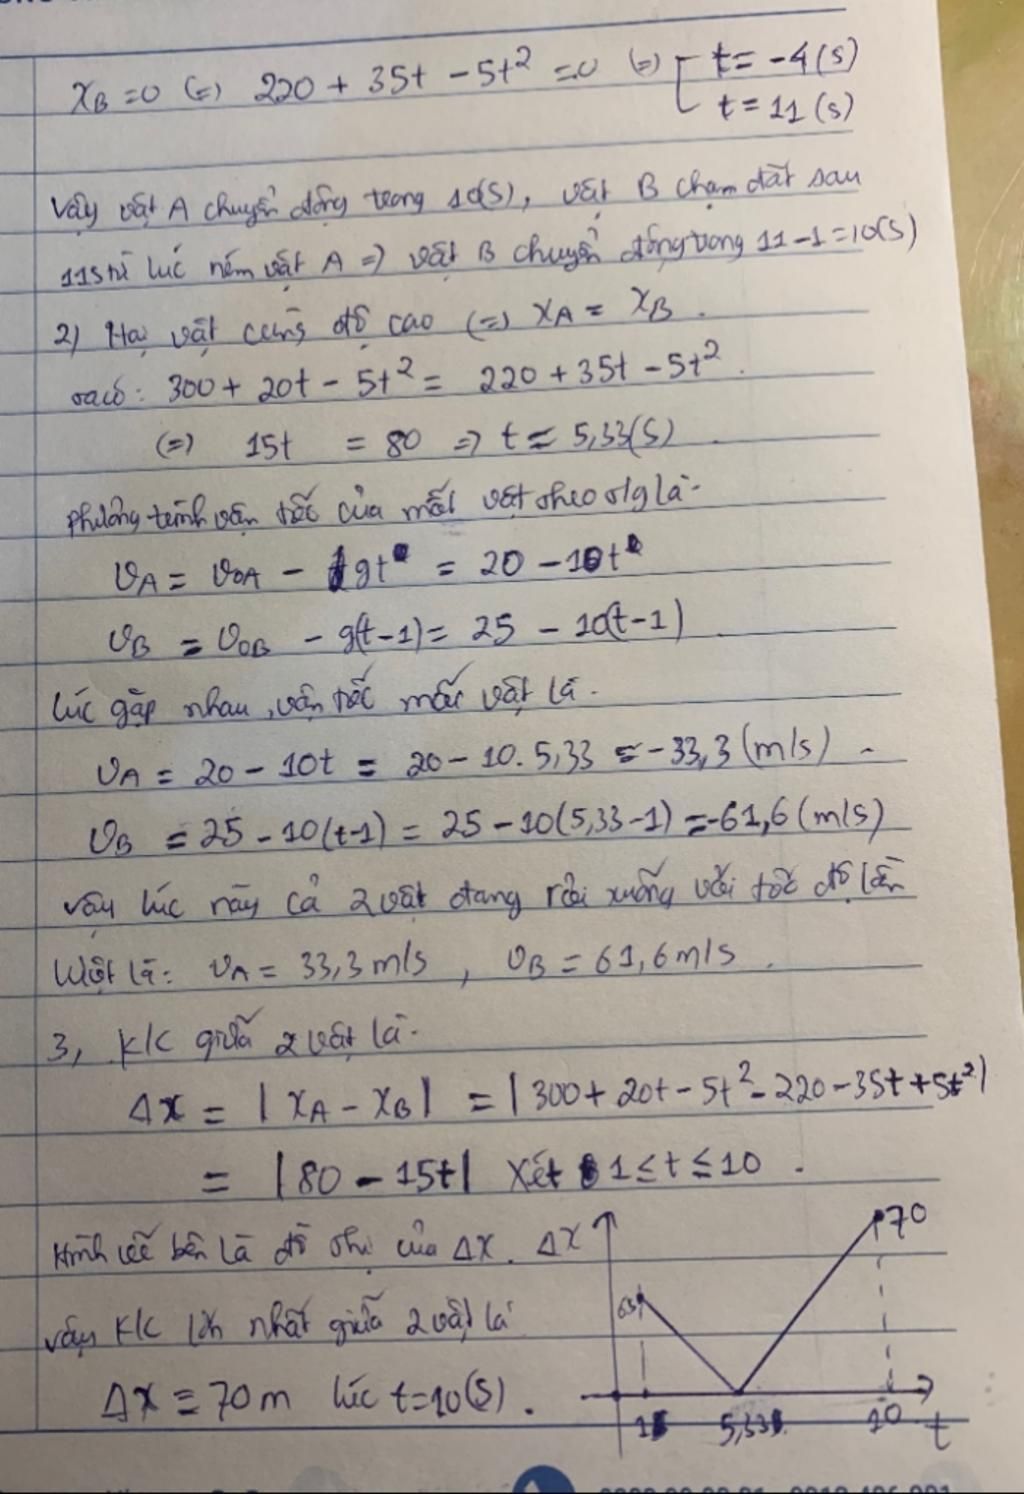 x_B = 0 (=) 220 + 35t - 5t² = 0 (=) [ t = -4 (s)
t = 11 (s)
Vậy vật A chuyển động trong 10(s), vật B chạm đất sau
11s từ lúc ném vật A => vật B chuyển động trong 11-1=10(s)
2) Hai vật cùng độ cao (=) x_A = x_B .
Ta có: 300 + 20t - 5t² = 220 + 35t - 5t² .
(=) 15t = 80 => t = 5,33(s) .
Phương trình vận tốc của mỗi vật theo t/g là.
v_A = v_0A - gt = 20 - 10t
v_B = v_0B - g(t-1) = 25 - 10(t-1)
Lúc gặp nhau, vận tốc mỗi vật là.
v_A = 20 - 10t = 20 - 10. 5,33 = -33,3 (m/s) .
v_B = 25 - 10(t-1) = 25 - 10(5,33-1) = -61,6 (m/s)
Vậy lúc này cả 2 vật đang rơi xuống với tốc độ lần
lượt là: v_A = 33,3 m/s , v_B = 61,6 m/s .
3, K/c giữa 2 vật là.
Δx = | x_A - x_B | = | 300 + 20t - 5t² - 220 - 35t + 5t² |
= | 80 - 15t | Xét 1 ≤ t ≤ 10 .
Hình vẽ bên là đồ thị của Δx.
Vậy K/c lớn nhất giữa 2 vật là
Δx = 70 m lúc t=10(s) .
Δx
70
65
1
5,33
10
t